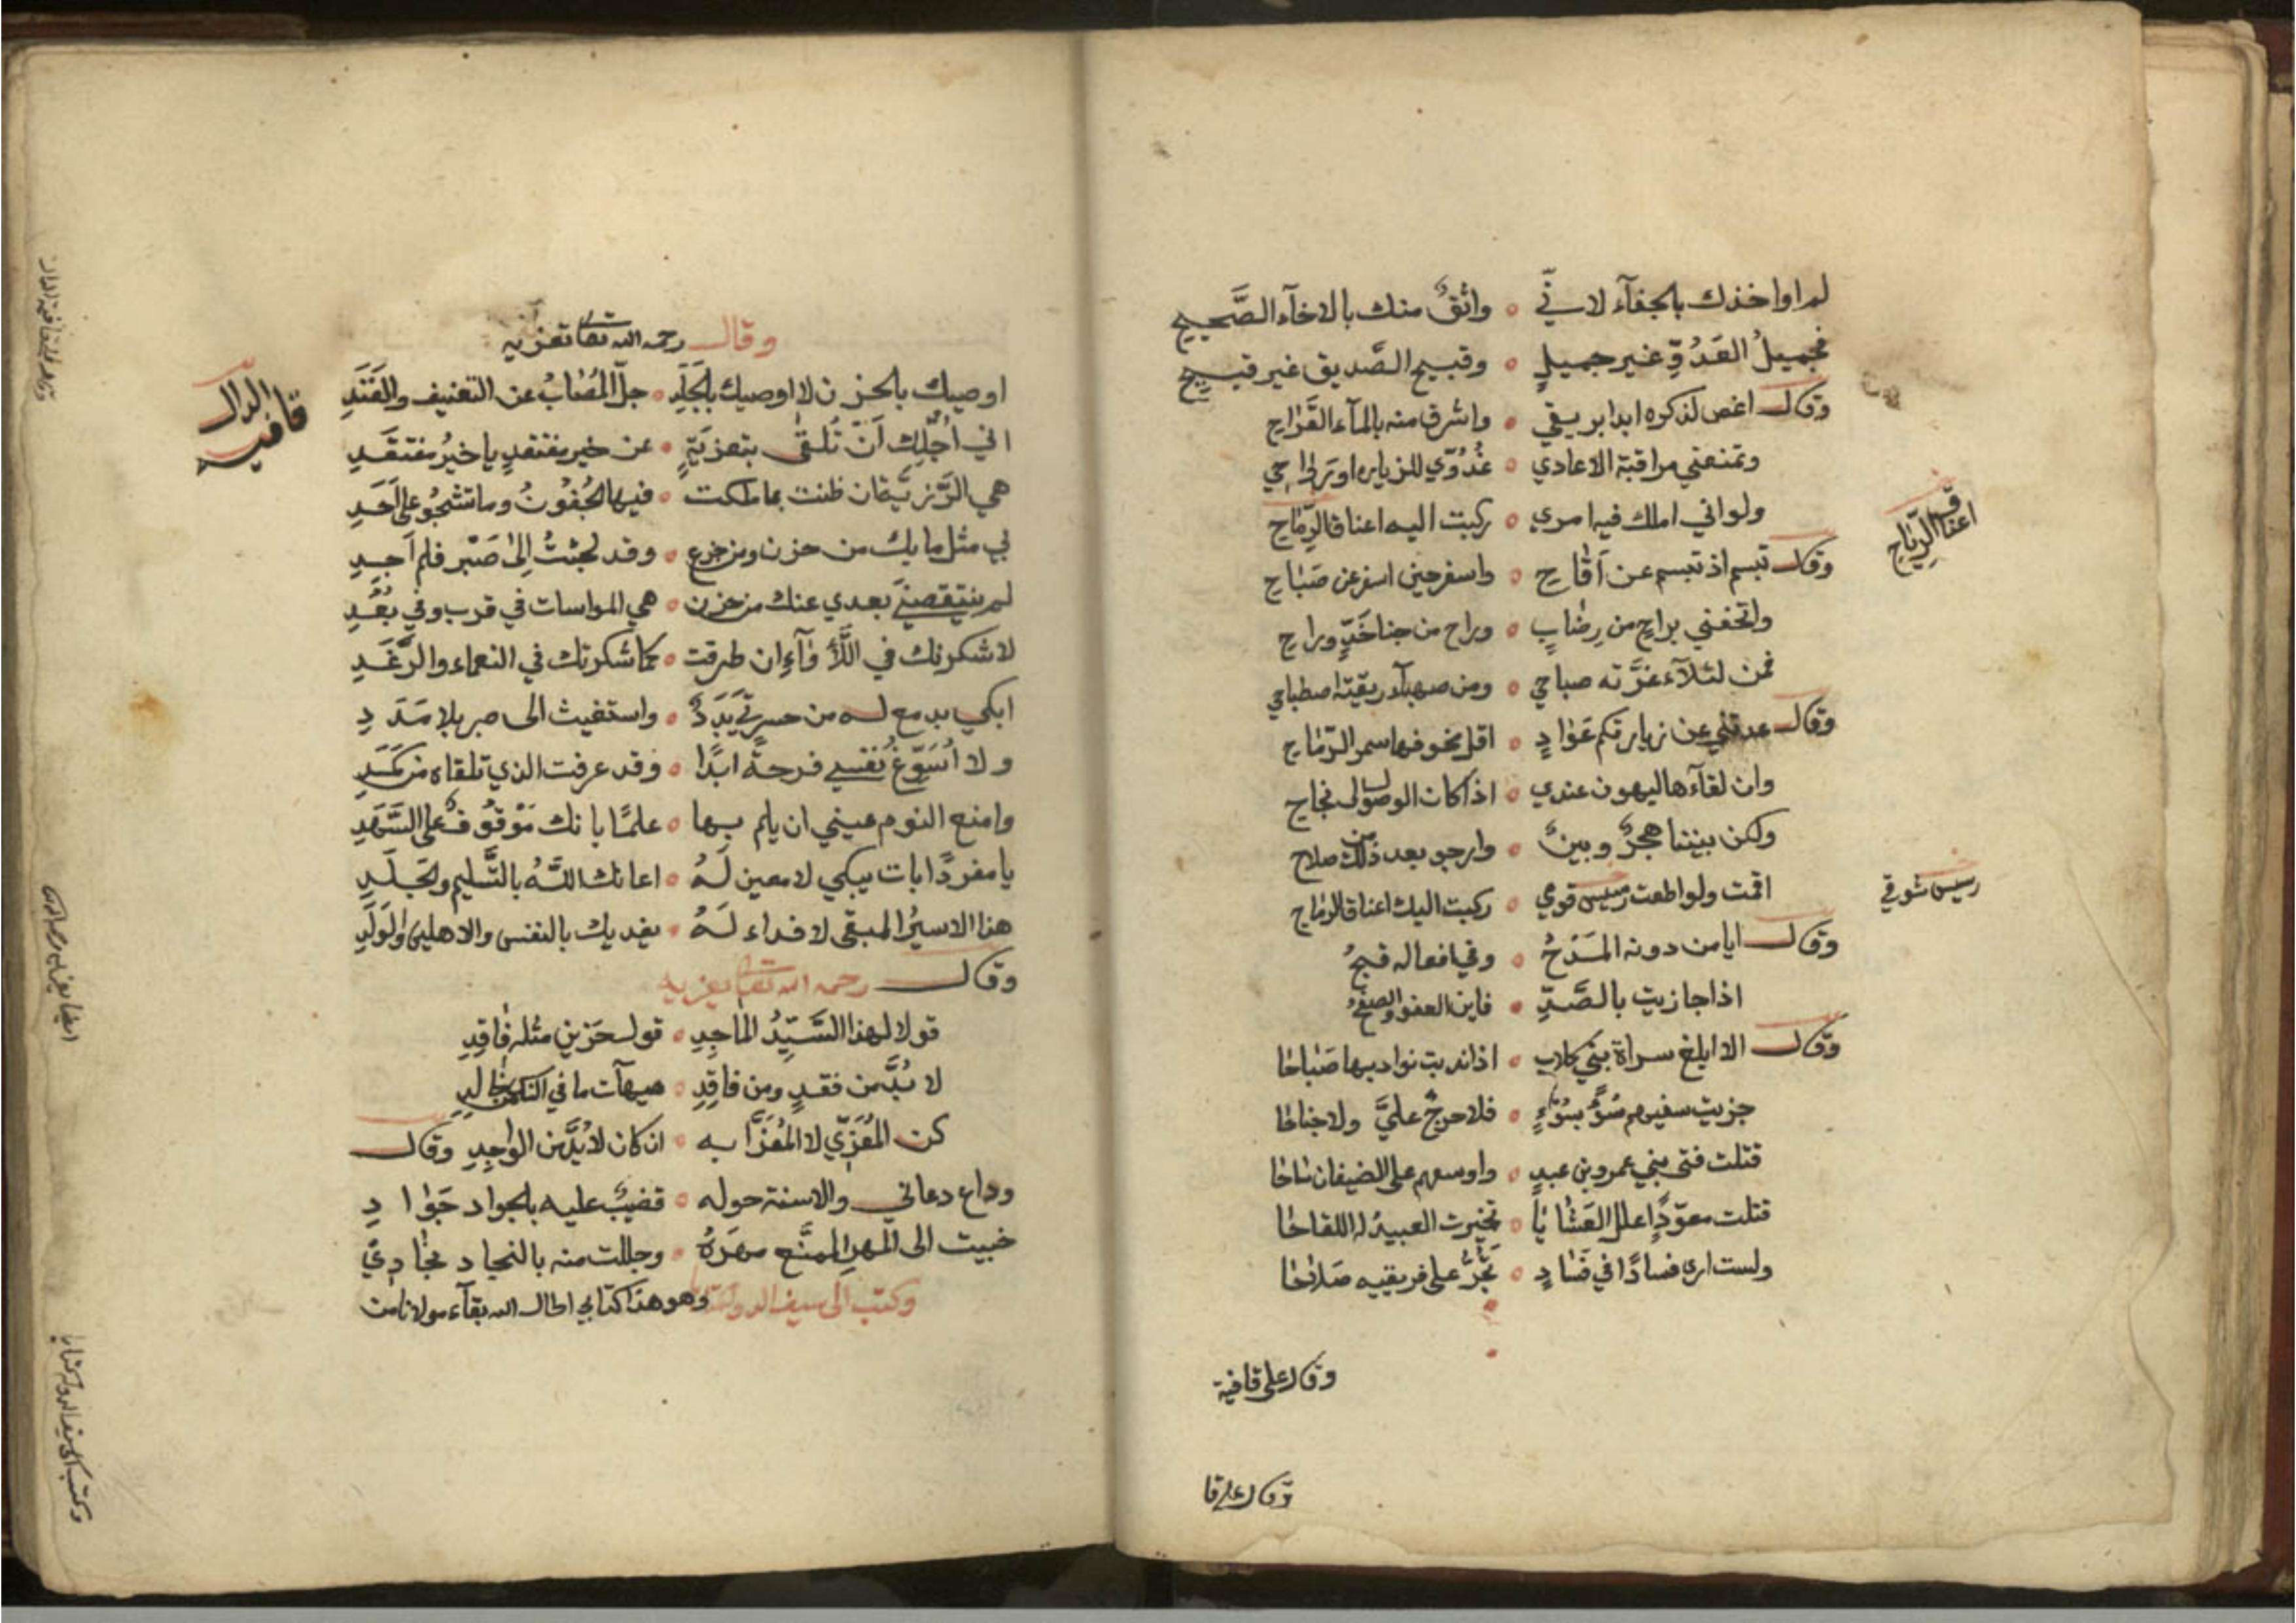 لم اواخذك بالجفآء لاني ۰ واثقٌ منك بالاخآء الصَّحيح
فجميلُ العَدُوِّ غير جميلٍ ۰ وقبيح الصَّديق غير قبيح
وقال اغص لذكره ابدا بريقي ۰ واشرق منه بالمآء القَراح
وتمنعني مراقبة الاعادي ۰ غُدُوّي للزياره او رَواحي
ولو اني املك فيه امري ۰ ركبت اليه اعناق الرِّماح
اعناق الرِّياح
وقال تبسم اذ تبسم عن اَقاح ۰ واسفر حين اسفر عن صَباح
واتحفني براحٍ من رِضابٍ ۰ وراح من جنا خَدٍّ وراح
فمن لئلآء غرَّته صباحي ۰ ومن صهبآء ريقته اصطباحي
وقال عدتني عن زيارتكم عَوادٍ ۰ اقل مخوفها سمر الرّماح
وان لقآءها ليهون عندي ۰ اذا كان الوصول الى نجاح
ولكن بيننا هجرٌ وبينٌ ۰ وارجو بعد ذلك من صلاح
اقمت ولو اطعت رسيس قومي ۰ ركبت اليك اعناق الرماح
رسيس شوقي
وقال ايا من دونه المَدْحُ ۰ وفي افعاله قبحُ
اذا جازيت بالصَّدِّ ۰ فاين العفو والصفحُ
وقال الا ابلغ سراة بني كلاب ۰ اذا ندبت نواديها صَباحا
جزيت سفيههم سُوًّ بسُوءٍ ۰ فلا حرجٌ عليَّ ولا جناحا
قتلت فتى بني عمرو بن عبدٍ ۰ واوسعهم على الضيفان ساحا
قتلت معوّدًا علل العَشايا ۰ تخيرت العبيدُ له اللقاحا
ولست ارى فسادًا في فسادٍ ۰ تَجُرُّ على فريقيه صَلاحا
وقال على قافية
وقال على قا
وقال رحمه الله تعالى تعزيه
قافية الدال
اوصيك بالحزن لا اوصيك بالجَلَدِ ۰ جلّ المُصابُ عن التعنيف والفَنَدِ
اني اُجِلّك اَنْ تُلقى بتعزيَةٍ ۰ عن خير مفتقدٍ يا خيرُ مفتقَدِ
هي الرَّزيَّة ان ظنت بما ملكت ۰ فيها الجُفُونُ وما تشجُو على اَحَدِ
بي مثل ما بك من حزن ومن جزع ۰ وقد لجئتُ اِلى صَبْر فلم اَجدِ
لم ينتقصنِي بعدي عنك من حزن ۰ هي المواسات في قرب وفي بُعُدِ
لاشكرنك في اللَّأْوآءِ ان طرقت ۰ كما شكرتك في النعماء والرَّغَدِ
ابكي بدمع له من حسرتي بَدَدٌ ۰ واستغيث الى صبر بلا مَدَدِ
ولا اُسَوِّغ نفسي فرحةً ابدًا ۰ وقد عرفت الذي تلقاه من كَمَدِ
وامنع النوم عيني ان يلم بها ۰ علمًا بانك مَوْقُوفٌ على السَّهَدِ
يا مفردًا بات يبكي لا معين لَهُ ۰ اعانك اللَّهُ بالتَّسليم والجَلَدِ
هذا الاسيرُ المبقى لا فداء لَهُ ۰ يفديك بالنفس والاهلين والوَلَدِ
وقال رحمه الله تعالى تعزيه
قولا لهذا السَّيِّدُ الماجِدِ ۰ قول حَزينٍ مثله فاقِدِ
لا بُدَّ من فقدٍ ومن فاقِدِ ۰ هيهآت ما في الناس من خالدِ
كن المُعَزِّي لا المُعَزَّا به ۰ ان كان لا بُدَّ من الواجِدِ وقال
وداع دعاني والاسنة حوله ۰ قضيبٌ عليه بالجواد جَوادِ
خبيت الى المهر الممنَّع مهرَهُ ۰ وجللت منه بالنجاد نجادي
وكتب الى سيف الدولة وهو هذا كتابي اطال الله بقآء مولانا من